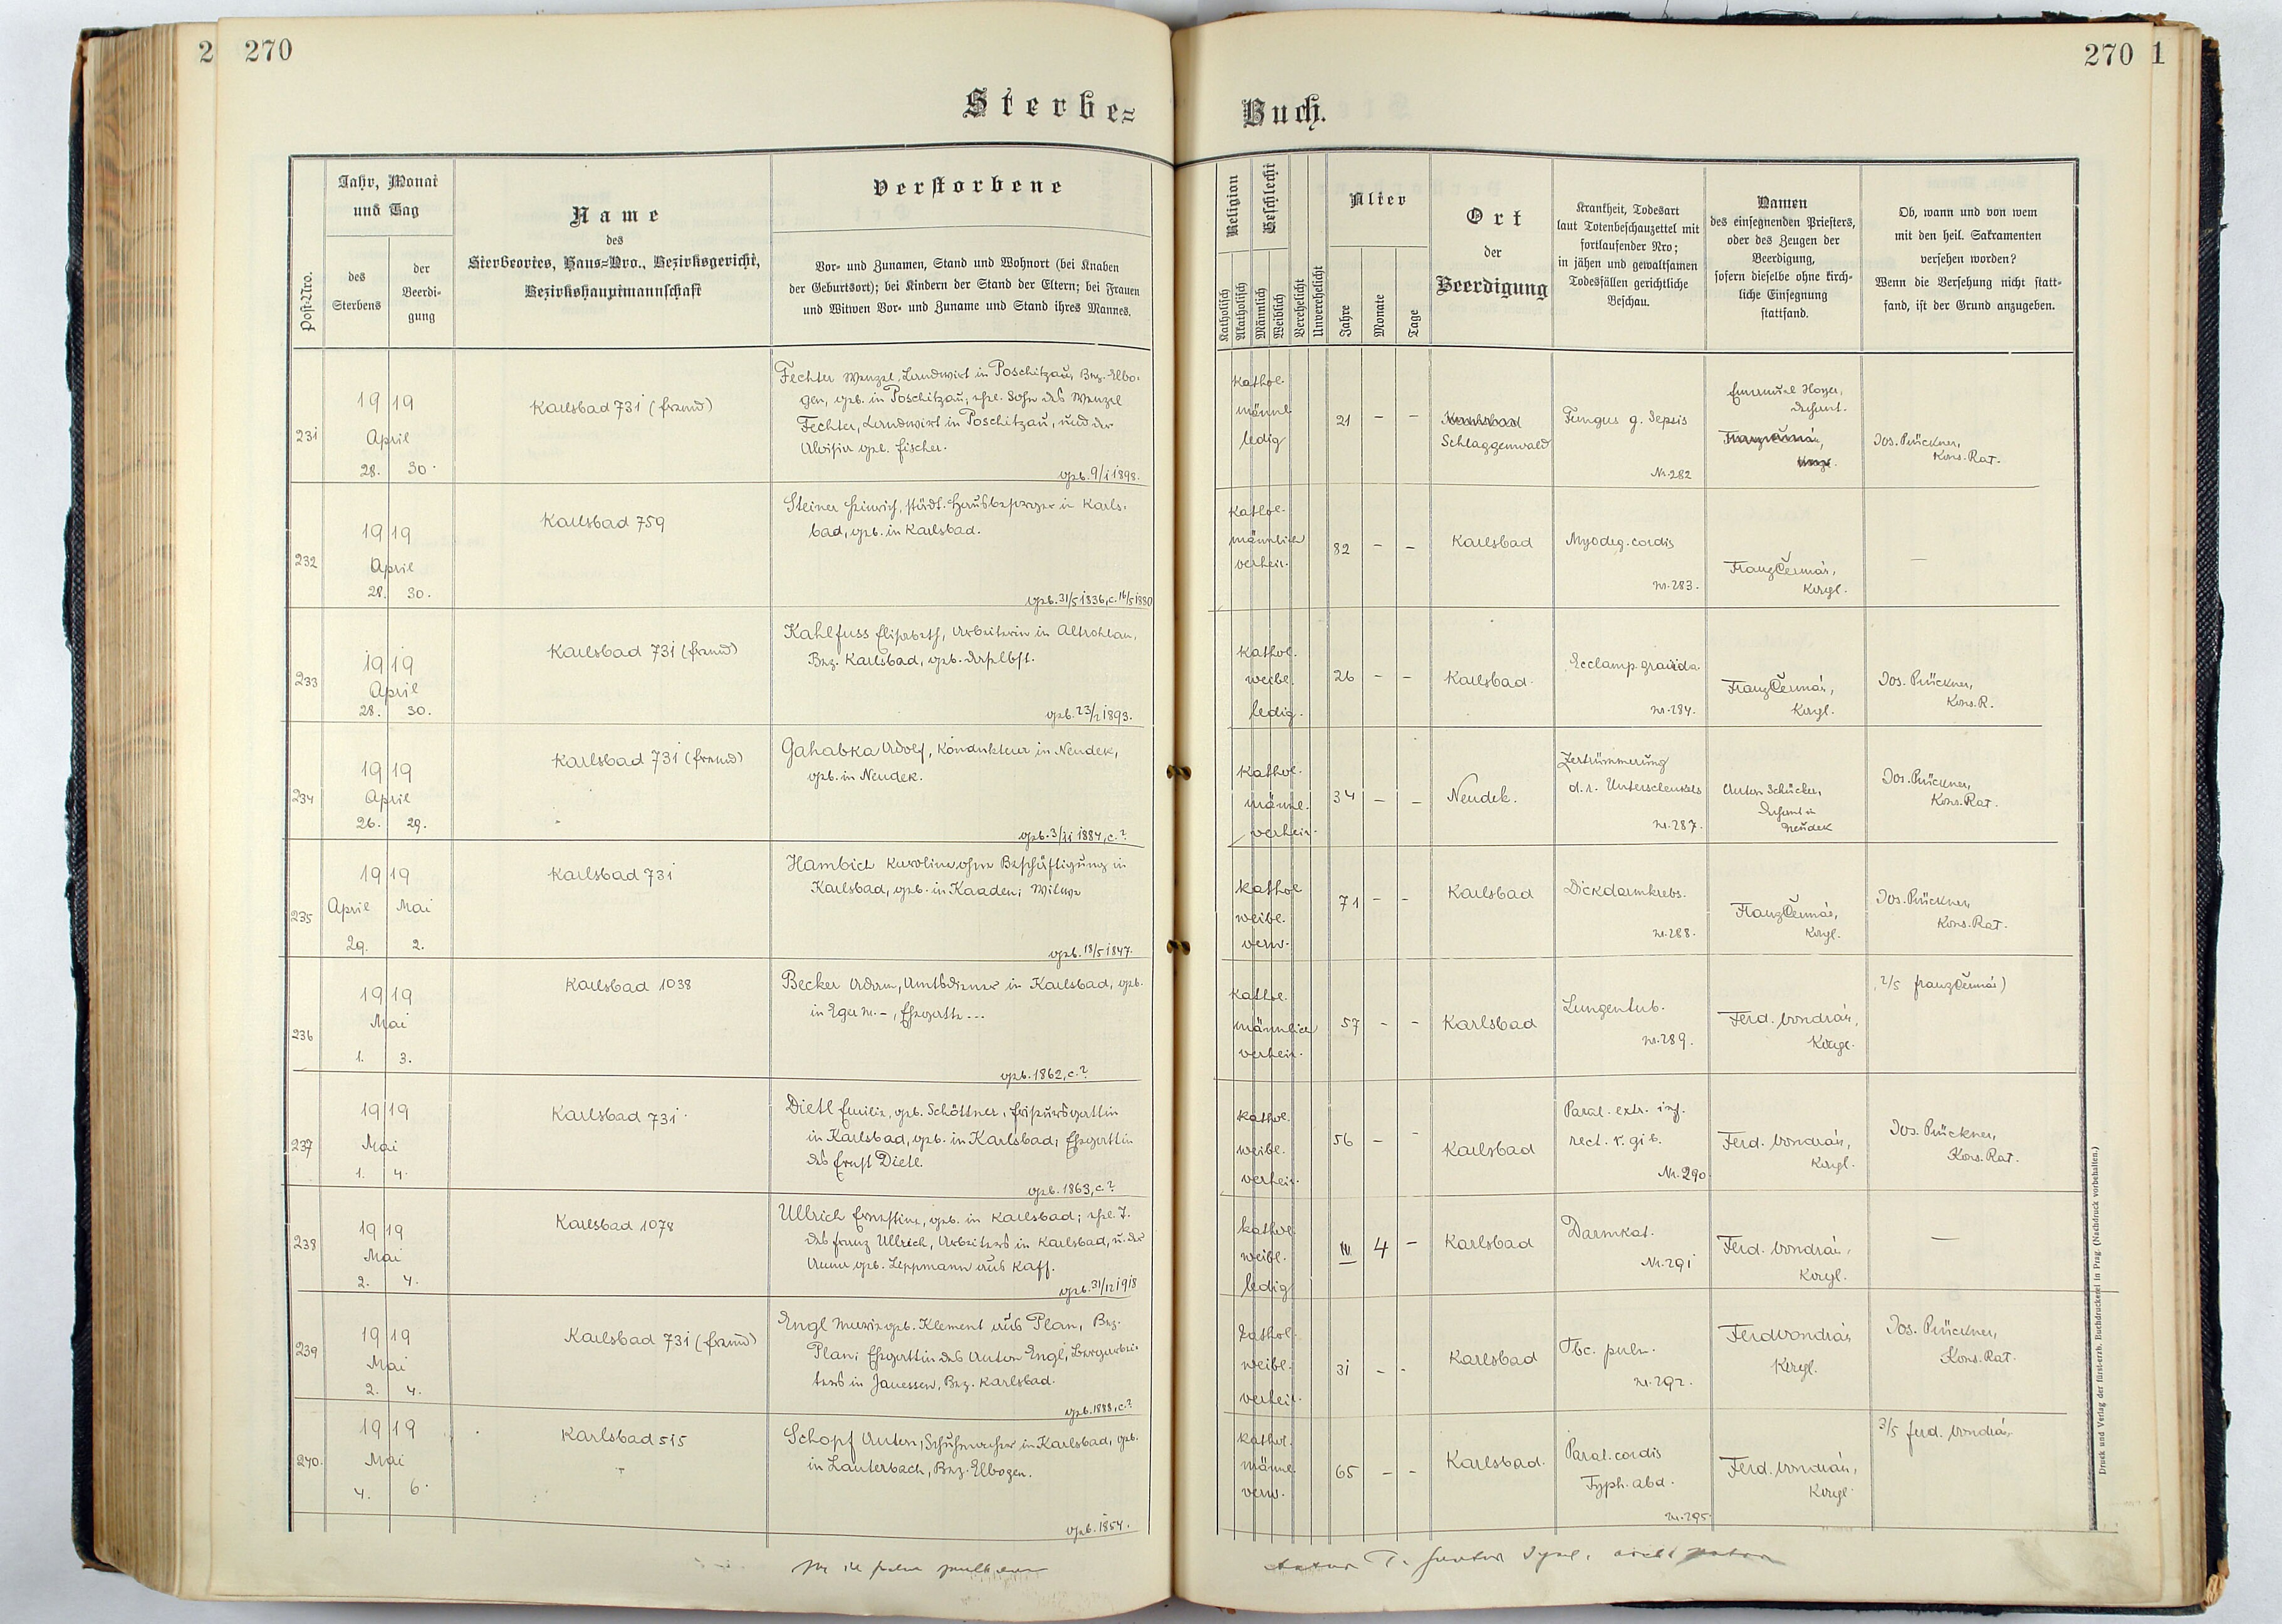 2 270
270 1
Sterbe=
Buch.
Post-Nro.
Jahr, Monat
und Tag
des
Sterbens
der
Beerdi-
gung
Name
des
Sterbeortes, Haus=Nro., Bezirksgericht,
Bezirkshauptmannschaft
Verstorbene
Vor- und Zunamen, Stand und Wohnort (bei Knaben
der Geburtsort); bei Kindern der Stand der Eltern; bei Frauen
und Witwen Vor- und Zuname und Stand ihres Mannes.
Religion
Katholisch
Akatholisch
Geschlecht
Männlich
Weiblich
Verehelicht
Unverehelicht
Alter
Jahre
Monate
Tage
Ort
der
Beerdigung
Krankheit, Todesart
laut Totenbeschauzettel mit
fortlaufender Nro;
in jähen und gewaltsamen
Todesfällen gerichtliche
Beschau.
Namen
des einsegnenden Priesters,
oder des Zeugen der
Beerdigung,
sofern dieselbe ohne kirch-
liche Einsegnung
stattfand.
Ob, wann und von wem
mit den heil. Sakramenten
versehen worden?
Wenn die Versehung nicht statt-
fand, ist der Grund anzugeben.
231
1919
April
28. 30.
Karlsbad 731 (fremd)
Fechter Wenzel, Landwirt in Poschitzau, Bez. Elbo-
gen, geb. in Poschitzau; ehel. Sohn des Wenzel
Fechter, Landwirt in Poschitzau, und der
Aloisia geb. Fischer.
geb. 9/1 1898.
kathol.
männl.
ledig
21 - -
Karlsbad
Schlaggenwald
Fungus g. Sepsis
Nr. 282
Emanuel Hoyer,
Dechant.
Franz Čermák,
Jos. Prückner,
Kons. Rat.
232
1919
April
28. 30.
Karlsbad 759
Steiner Heinrich, städt. Hausbesorger in Karls-
bad, geb. in Karlsbad.
geb. 31/5 1836, c. 16/5 1880
kathol.
männlich
verheir.
82 - -
Karlsbad
Myodeg. cordis
nr. 283.
Franz Čermák,
—
233
1919
April
28. 30.
Karlsbad 731 (fremd)
Kahlfuss Elisabeth, Arbeiterin in Altrohlau,
Bez. Karlsbad, geb. daselbst.
geb. 23/2 1893.
kathol.
weibl.
ledig.
26 - -
Karlsbad.
Ecclamp. gravida.
nr. 284.
Franz Čermák,
Jos. Prückner,
Kons. R.
234
1919
April
26. 29.
Karlsbad 731 (fremd)
Gahabka Adolf, Kondukteur in Neudek,
geb. in Neudek.
geb. 3/11 1884, c. ?
kathol.
männl.
verheir.
34 - -
Neudek.
Zertrümmerung
d. r. Unterschenkels
nr. 287.
Anton Schücker,
Dechant in
Neudek
Jos. Prückner,
Kons. Rat.
235
1919
April Mai
29. 2.
Karlsbad 731
Hambich Karoline, ohne Beschäftigung in
Karlsbad, geb. in Kaaden; Witwe
geb. 18/5 1847.
kathol
weibl.
verw.
71 - -
Karlsbad
Dickdarmkrebs.
nr. 288.
Franz Čermák,
Jos. Prückner,
Kons. Rat.
236
1919
Mai
1. 3.
Karlsbad 1038
Becker Adam, Amtsdiener in Karlsbad, geb.
in Eger nr. -, Ehegatte ...
geb. 1862, c. ?
kathol.
männlich
verheir.
57 - -
Karlsbad
Lungentub.
nr. 289.
Ferd. Vondrán,
2/5 Franz Čermák)
237
1919
Mai
1. 4.
Karlsbad 731.
Dietl Emilie, geb. Schöttner, Friseursgattin
in Karlsbad, geb. in Karlsbad; Ehegattin
des Ernst Dietl.
geb. 1863, c. ?
kathol.
weibl.
verheir.
56 - -
Karlsbad
Paral. extr. inf.
Nr. 290
Ferd. Vondrán,
Jos. Prückner,
Kons. Rat.
238
1919
Mai
2. 4.
Karlsbad 1078
Ullrich Ernestine, geb. in Karlsbad; ehel. T.
des Franz Ullrich, Arbeiters in Karlsbad, u. der
Anna geb. Leppmann aus Kaff.
geb. 31/12 1918
kathol
weibl.
ledig
IV 4 -
Karlsbad
Darmkat.
Nr. 291
Ferd. Vondrán,
—
239
1919
Mai
2. 4.
Karlsbad 731 (fremd)
Engl Marie geb. Klement aus Plan, Bez.
Plan; Ehegattin des Anton Engl, Bergarbei-
ters in Janessen, Bez. Karlsbad.
geb. 1888, c. ?
kathol.
weibl.
verheir.
31 - -
Karlsbad
Tbc. pulm.
nr. 292.
Ferd Vondrán
Jos. Prückner,
Kons. Rat.
240.
1919
Mai
4. 6.
Karlsbad 515
Schopf Anton, Schuhmacher in Karlsbad, geb.
in Lauterbach, Bez. Elbogen.
geb. 1854.
kathol.
männl.
verw.
65 - -
Karlsbad.
Paral. cordis
Typh. abd.
nr. 295
Ferd. Vondrán,
3/5 Ferd. Vondrán
Druck und Verlag der fürst-erzb. Buchdruckerei in Prag. (Nachdruck vorbehalten.)